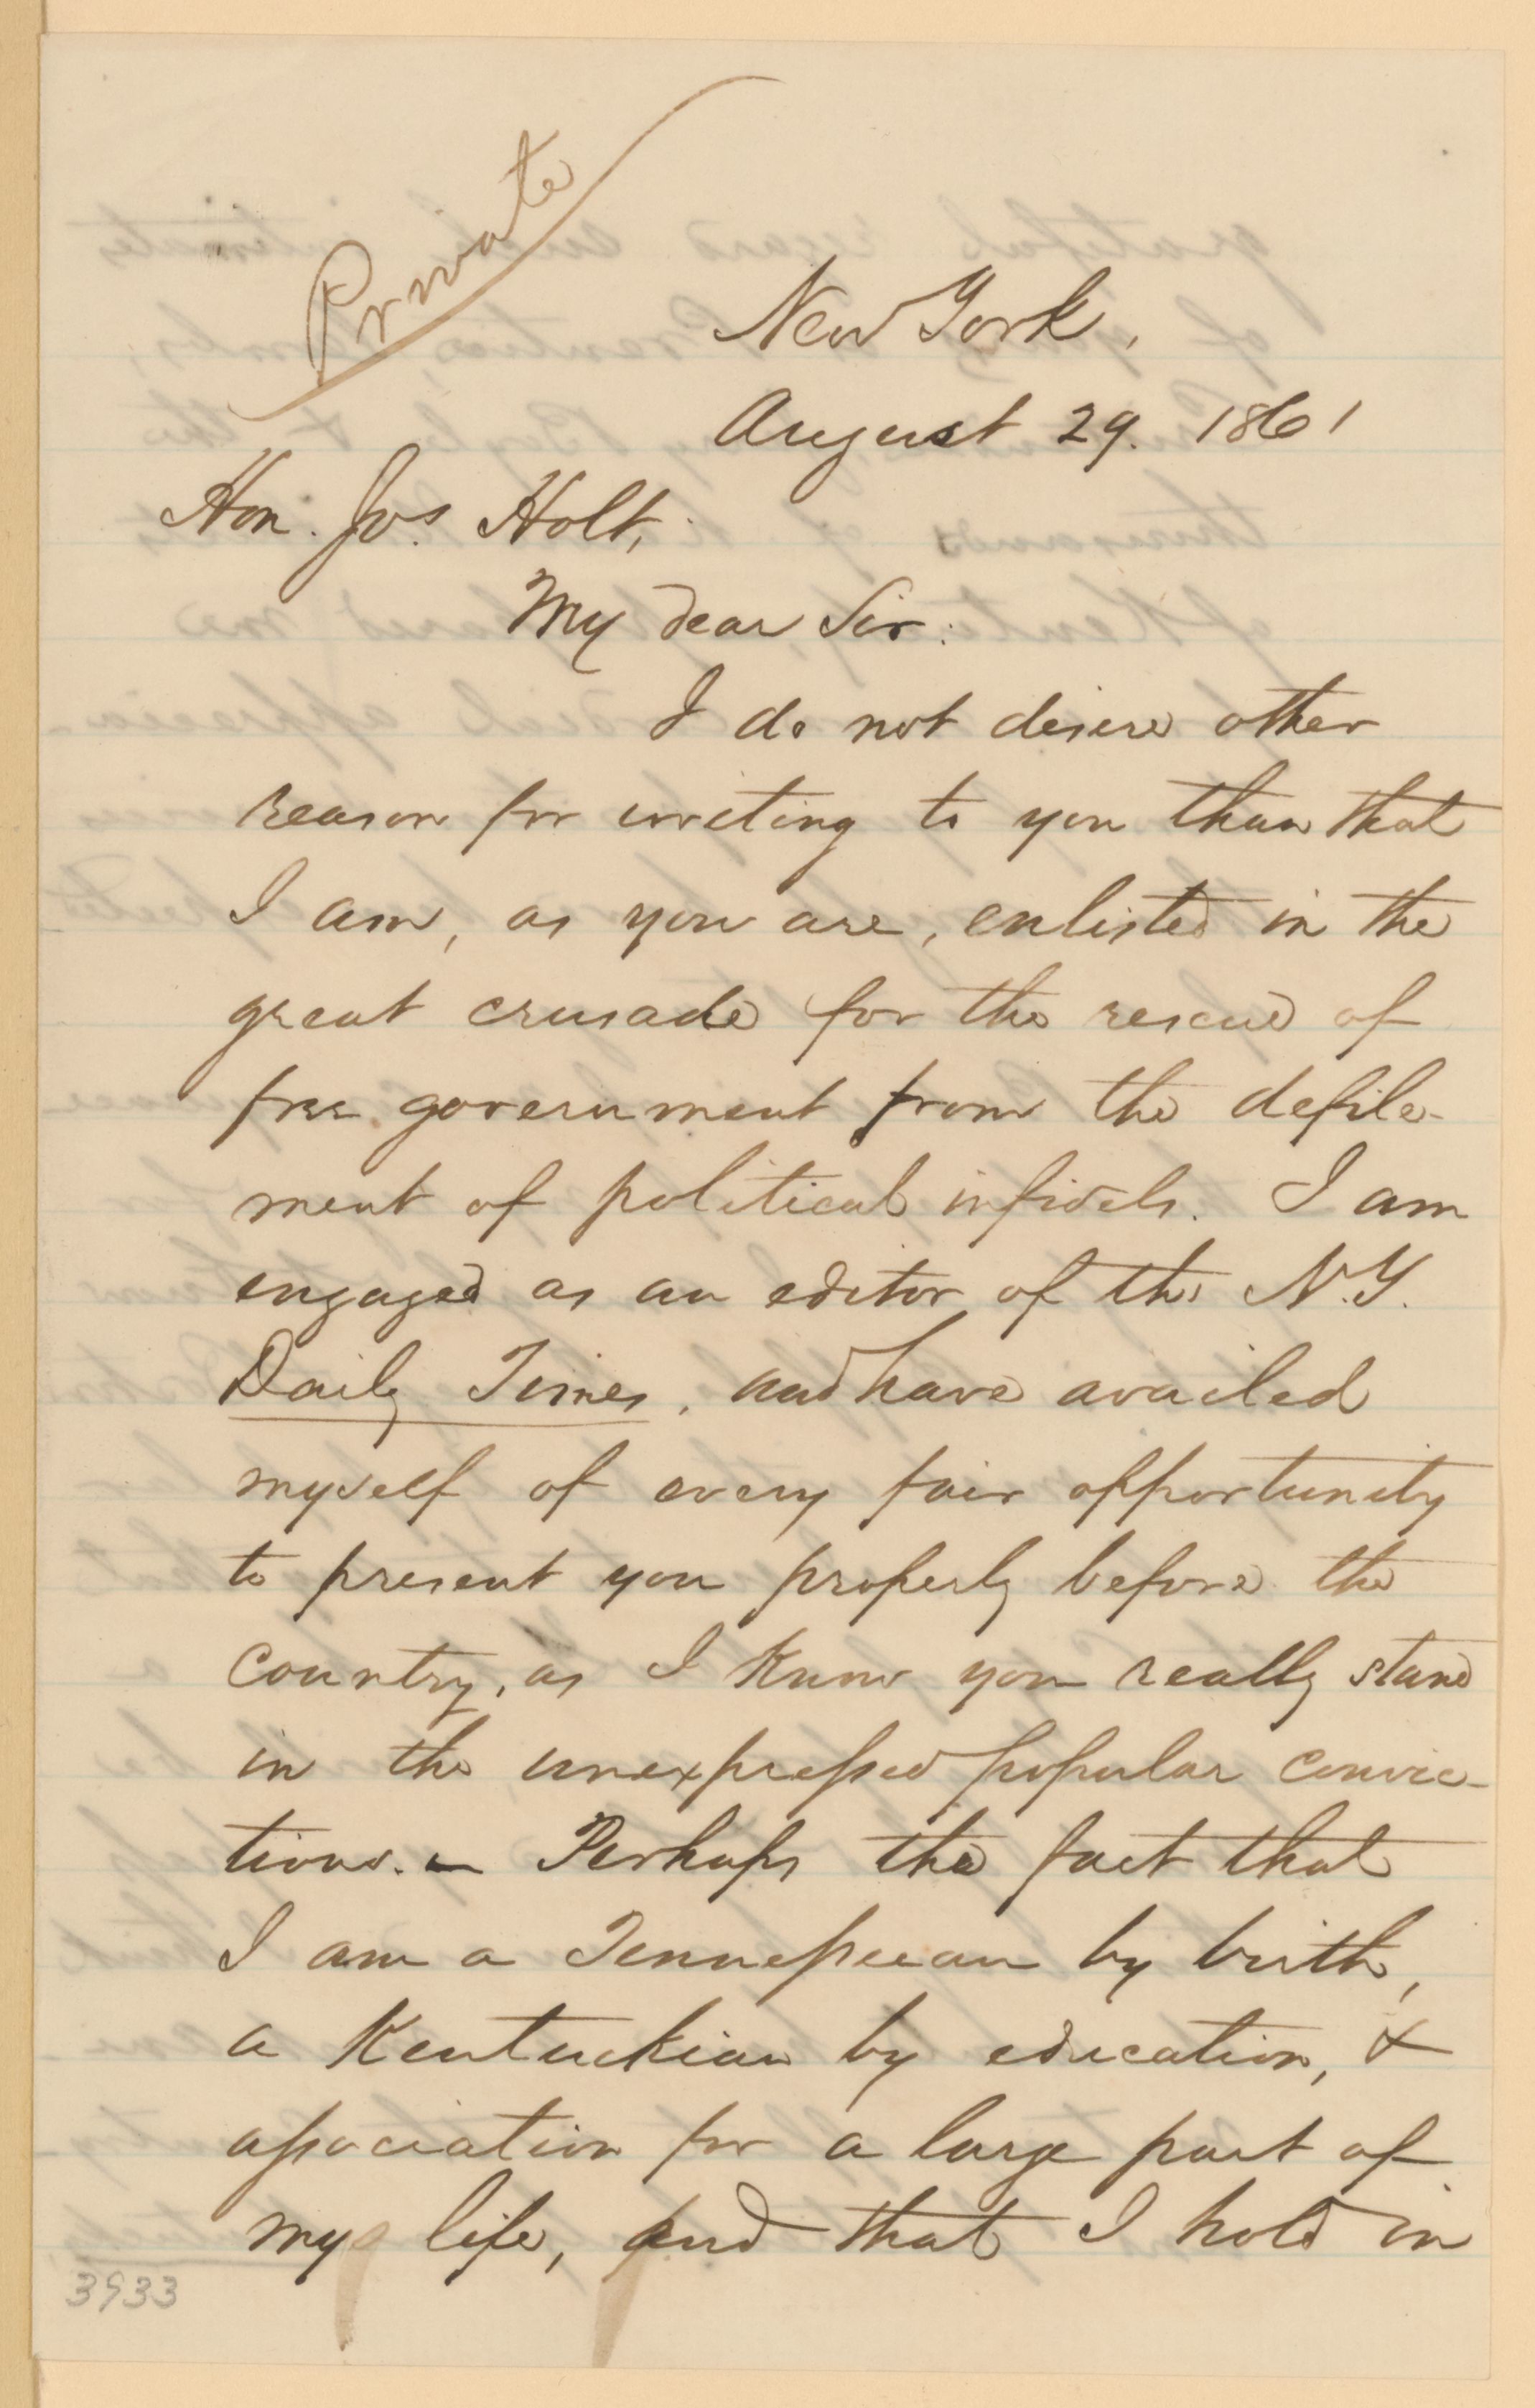 Private
New York,
August 29. 1861
Hon. Jos. Holt,
My dear Sir:
I do not desire other
reason for writing to you than that
I am, as you are, enlisted in the
great crusade for the rescue of
free government from the defile-
ment of political infidels. I am
engaged as an editor of the N.Y.
Daily Times, and have availed
myself of every fair opportunity
to present you properly before the
country, as I know you really stand
in the unexpressed popular convic-
tions. – Perhaps the fact that
I am a Tennesseean by birth,
a Kentuckian by education, &
association for a large part of
my life, and that I hold in
3933